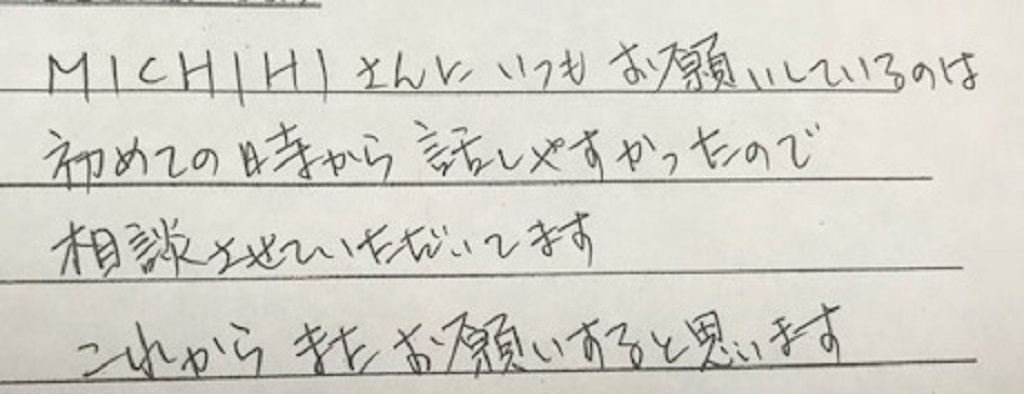 MICHIHIさんに いつも お願いしているのは
初めての時から 話しやすかったので
相談させていただいてます
これから また お願いすると思います